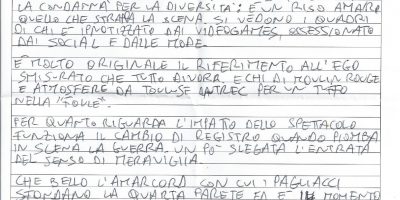 LA CONDANNA PER LA DIVERSITÀ; È UN RISO AMARO
QUELLO CHE STRARIPA LA SCENA. SI VEDONO I QUADRI
DI CHI È IPNOTIZZATO DAI VIDEOGAMES, OSSESSIONATO
DAI SOCIAL E DALLE MODE.
È MOLTO ORIGINALE IL RIFERIMENTO ALL'EGO
SMISURATO CHE TUTTO DIVORA. ECHI DI MOULIN ROUGE
E ATMOSFERE DA TOULUSE LAUTREC PER UN TUFFO
NELLA "FOLIE".
PER QUANTO RIGUARDA L'IMPATTO DELLO SPETTACOLO
FUNZIONA IL CAMBIO DI REGISTRO QUANDO PIOMBA
IN SCENA LA GUERRA. UN PO' SLEGATA L'ENTRATA
DEL SENSO DI MERAVIGLIA.
CHE BELLO L'AMARCORD CON CUI I PAGLIACCI
SFONDANO LA QUARTA PARETE ED È IL MOMENTO